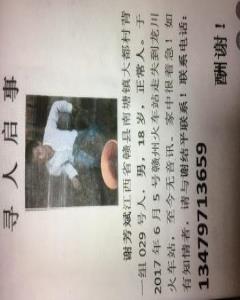 寻人启事
谢芳斌江西省赣县南塘镇大都村背
一组 029 号人，男，18 岁，正常人。于
2017 年 6 月 5 号赣州火车站走失到龙川
火车站，至今无音讯，家中很着急！如
有知情者，请与谢结平联系！联系电话：
13479713659
酬谢！